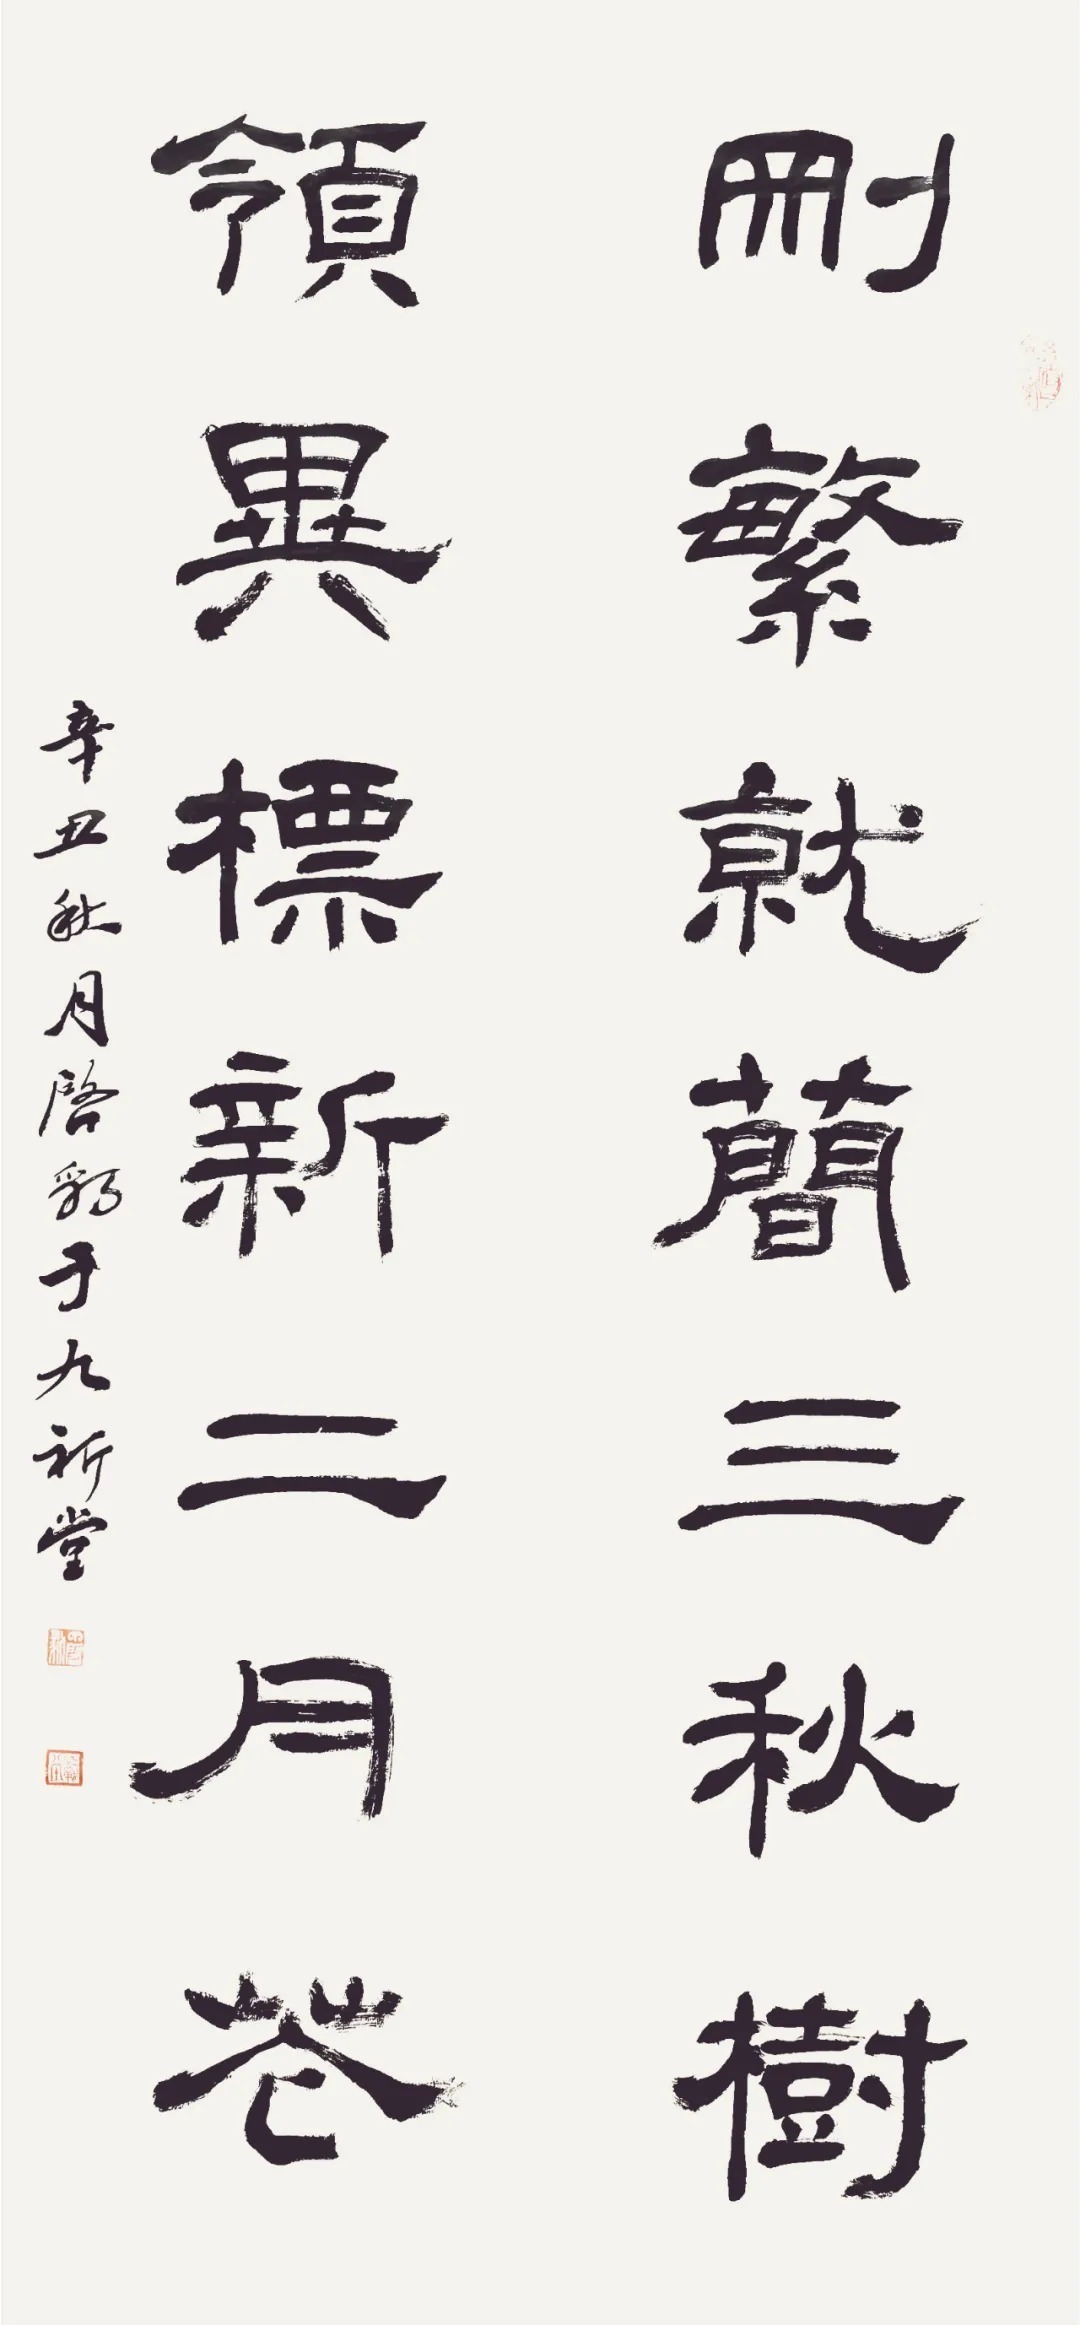 刪繁就簡三秋樹
領異標新二月花
辛丑秋月啓豹于九祈堂